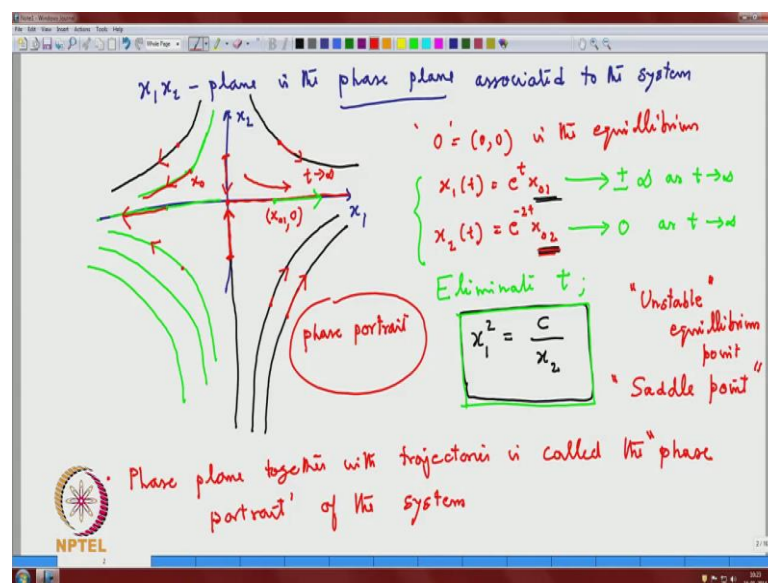 Note1 - Windows Journal
File Edit View Insert Actions Tools Help
Whole Page
x₁x₂ - plane is the phase plane associated to the system
x₂
x₀
t→∞
(x₀₁, 0)
x₁
'0' = (0,0) is the equillibrium
x₁(t) = eᵗ x₀₁ → ± ∞ as t→∞
x₂(t) = e⁻²ᵗ x₀₂ → 0 as t→∞
Eliminate t;
x₁² = C / x₂
"Unstable"
equillibrium
point
"Saddle point"
phase portrait
• Phase plane together with trajectories is called the "phase
portrait' of the system
NPTEL
2
10:23